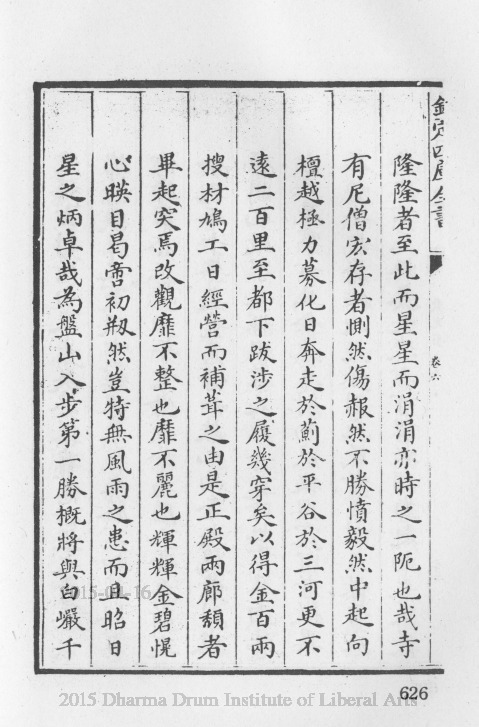 欽定四庫全書
卷六
隆隆者至此而星星而涓涓亦時之一阨也哉寺
有尼僧宏存者惻然傷赧然不勝憤毅然中起向
檀越極力募化日奔走於薊於平谷於三河更不
遠二百里至都下跋涉之履幾穿矣以得金百兩
搜材鳩工日經營而補葺之由是正殿兩廊頹者
畢起突焉改觀靡不整也靡不麗也輝輝金碧愰
心暎目曷啻初剏然豈特無風雨之患而且昭日
星之炳卓哉為盤山入步第一勝概將與白巖千
2015-04-16
626
2015 Dharma Drum Institute of Liberal Arts